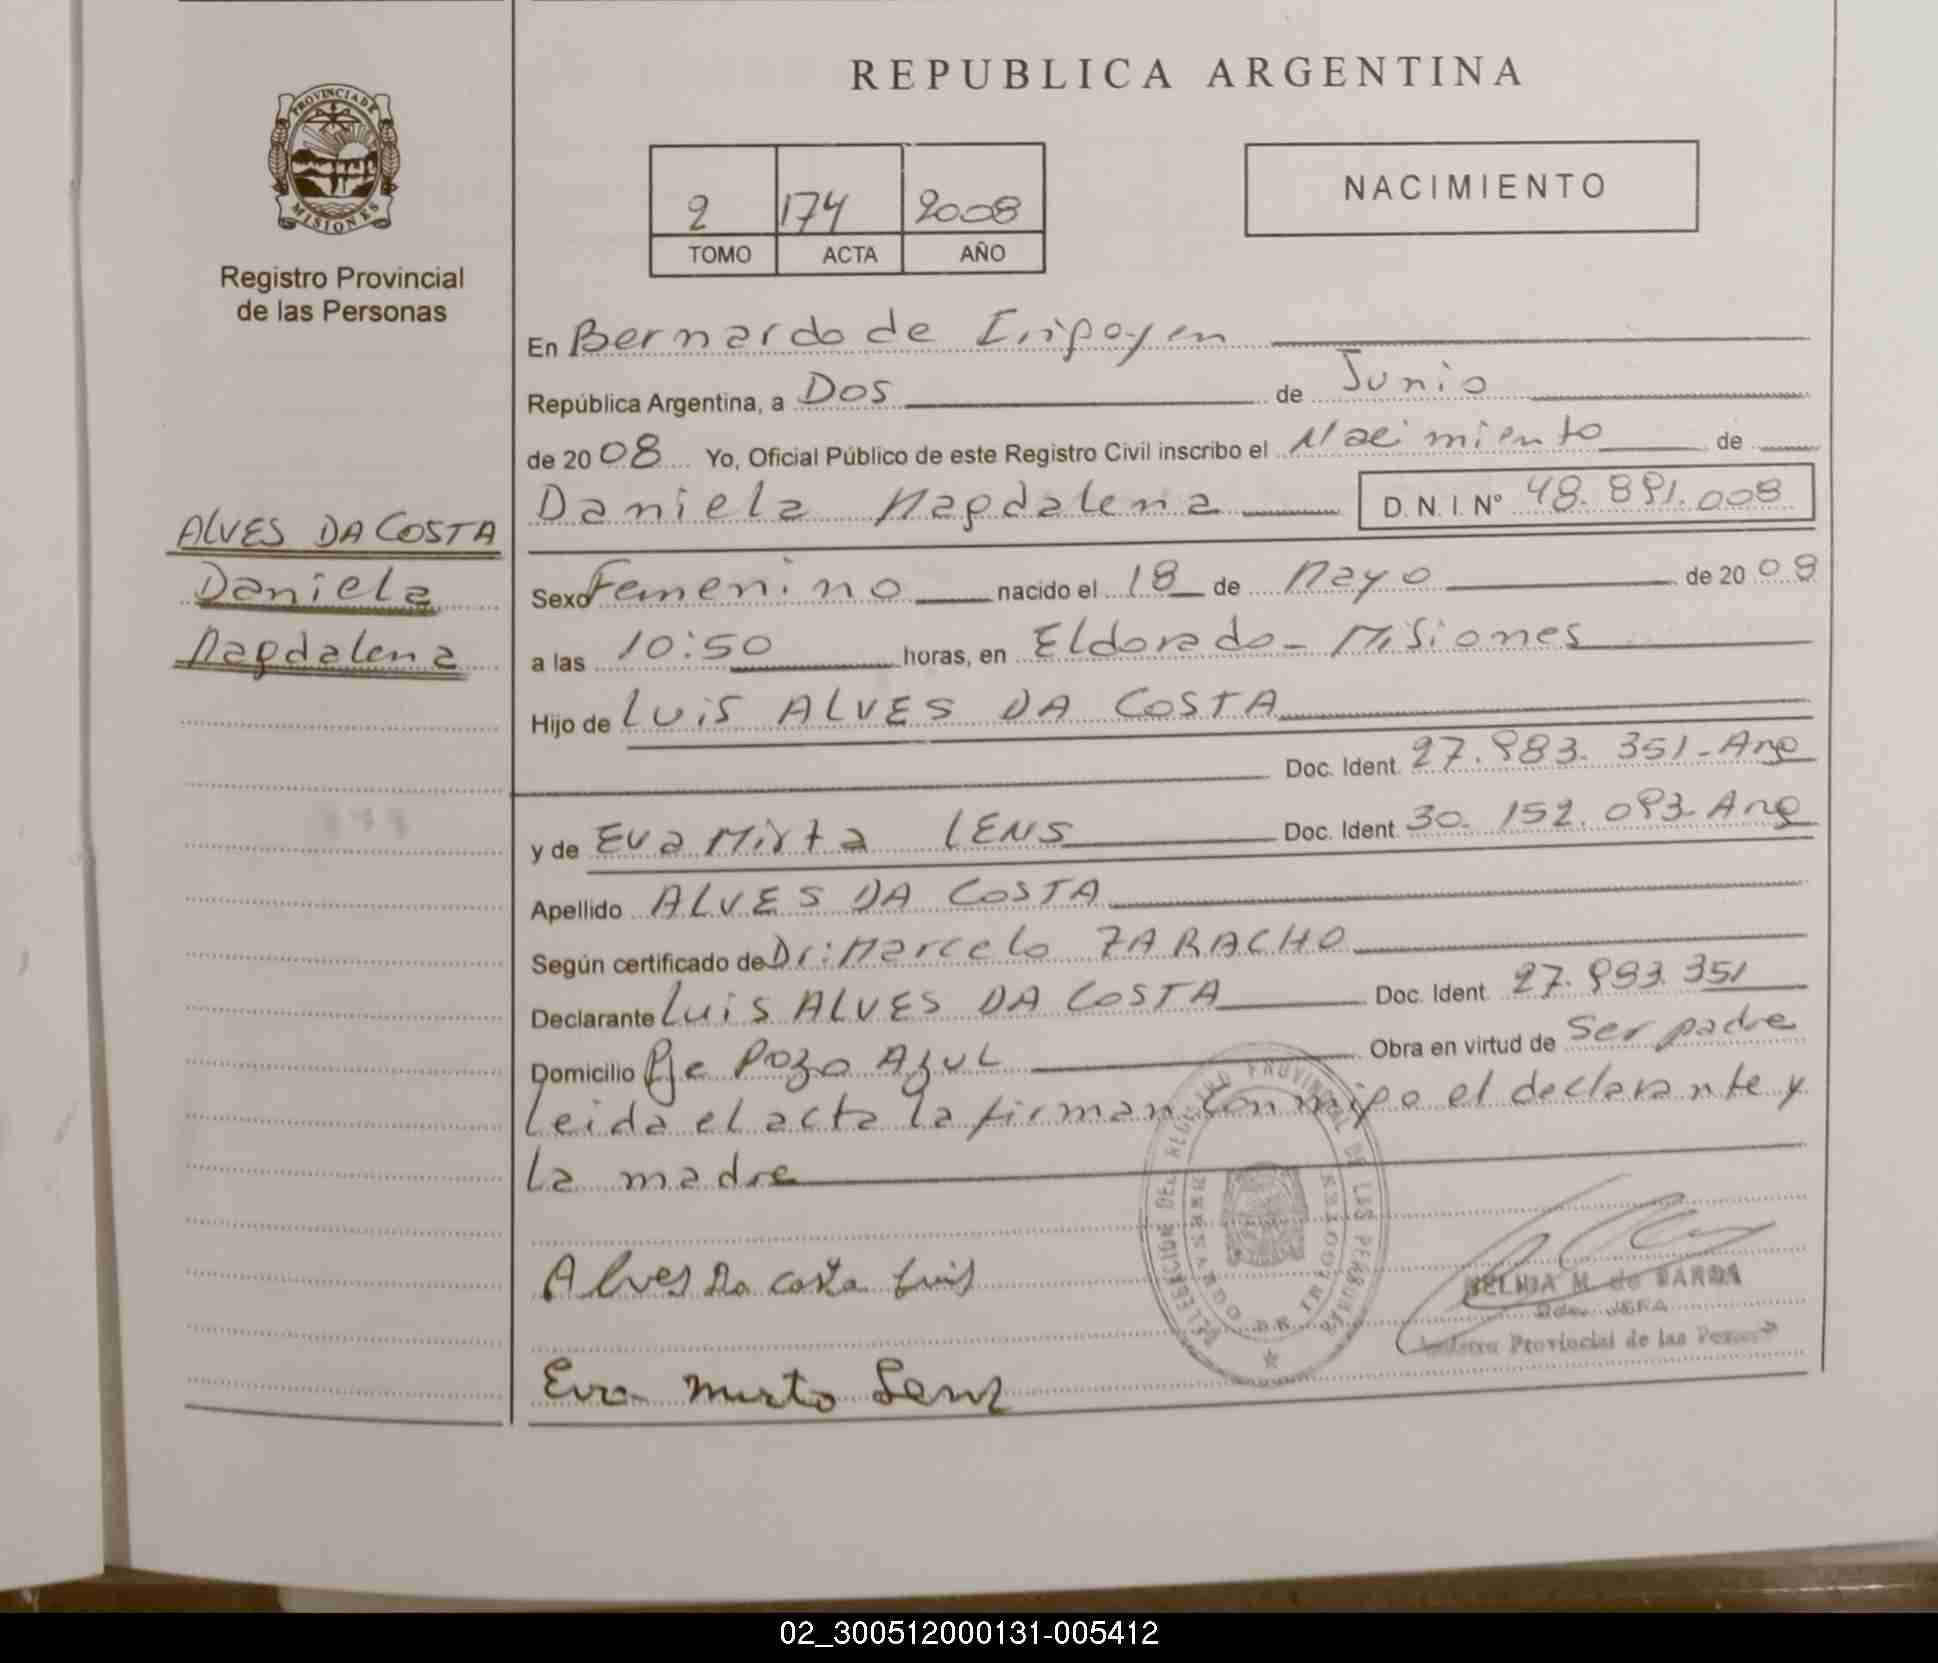 REPUBLICA ARGENTINA
PROVINCIA DE
MISIONES
Registro Provincial
de las Personas
2 174 2008
TOMO ACTA AÑO
NACIMIENTO
En Bernardo de Iripoyen
República Argentina, a Dos de Junio
de 2008 Yo, Oficial Público de este Registro Civil inscribo el Nacimiento de
Daniela Magdalena D. N. I. Nº 48.891.008
ALVES DA COSTA
Daniela
Magdalena
Sexo Femenino nacido el 18 de Mayo de 2008
a las 10:50 horas, en Eldorado - Misiones
Hijo de Luis ALVES DA COSTA
Doc. Ident. 27.983.351-Arg
y de Eva Mirta LENS Doc. Ident. 30.152.093-Arg
Apellido ALVES DA COSTA
Según certificado de Dr: Marcelo ZARACHO
Declarante Luis ALVES DA COSTA Doc. Ident. 27.983.351
Domicilio Pje Pozo Azul Obra en virtud de Ser padre
Leida el acta la firman conmigo el declarante y
la madre
Alves Da Costa Luis
Eva Mirta Lenz
DELEGACION DEL REGISTRO PROVINCIAL DE LAS PERSONAS
BERNARDO DE IRIGOYEN
M. de
JEFA
Provincial de las
02_300512000131-005412